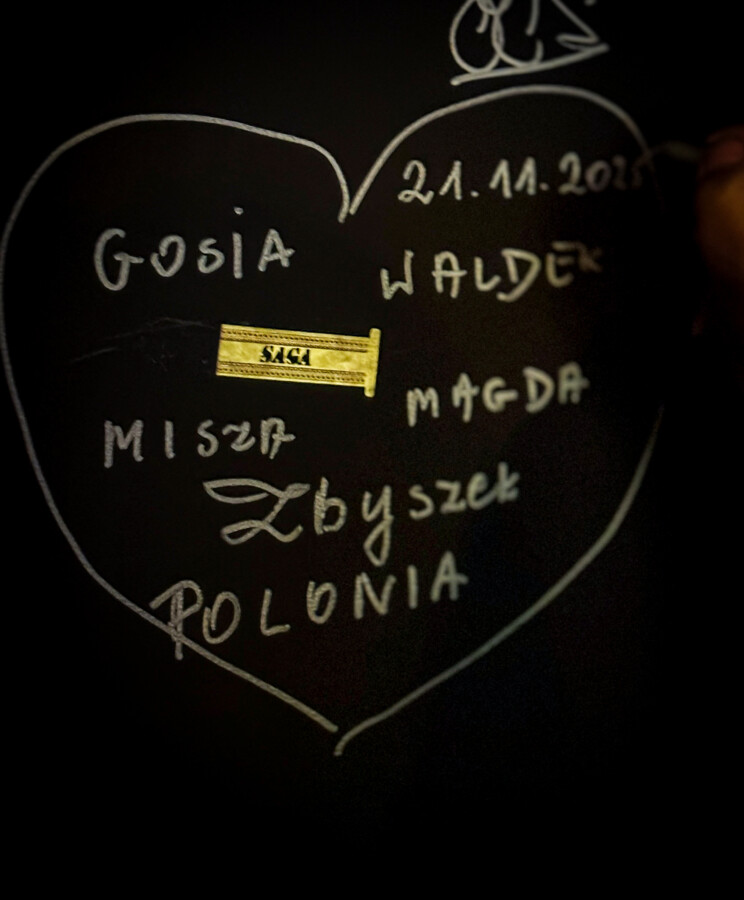 21.11.2025
GOSIA
WALDEK
SAGA
MAGDA
MISZA
Zbyszek
POLONIA